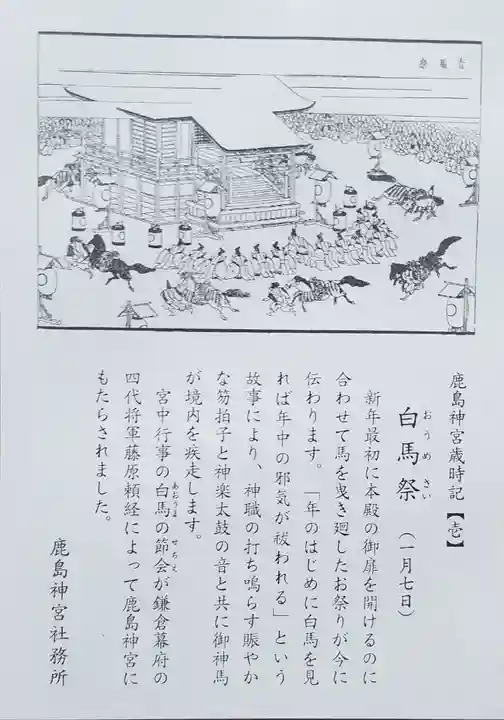 白馬祭
鹿島神宮歳時記【壱】
白馬祭（一月七日）
おうめさい
新年最初に本殿の御扉を開けるのに
合わせて馬を曳き廻したお祭りが今に
伝わります。「年のはじめに白馬を見
れば年中の邪気が祓われる」という
故事により、神職の打ち鳴らす賑やか
な笏拍子と神楽太鼓の音と共に御神馬
が境内を疾走します。
宮中行事の白馬の節会が鎌倉幕府の
あおうま せちえ
四代将軍藤原頼経によって鹿島神宮に
もたらされました。
鹿島神宮社務所